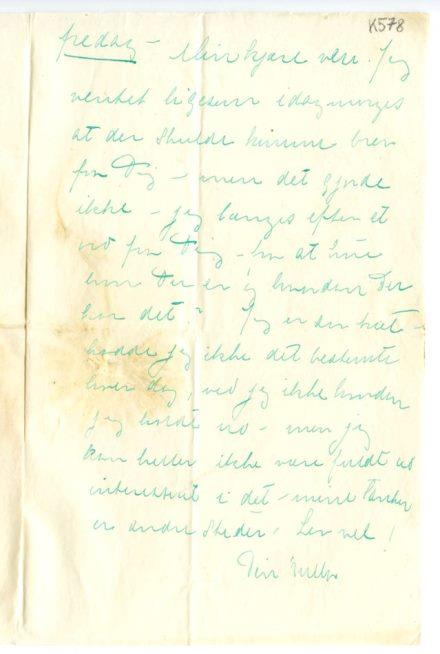 K578
fredag – Min kjære ven. Jeg
ventet ligesom idagmorges
at der skulde komme brev
fra Dig – men det gjorde
ikke – jeg længes efter et
ord fra Dig – for at høre
hvor Du er og hvordan Du
har det? Jeg er saa træt –
hadde jeg ikke det bestemte
hver dag, ved jeg ikke hvordan
jeg holdt ud – men jeg
kan heller ikke være fuldt ud
interessert i det – mine Tanker
er andre Steder. Lev vel!
Din